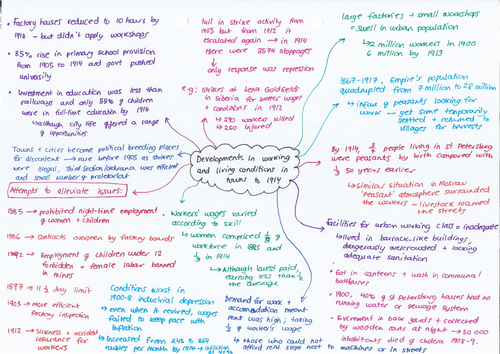 • Factory hours reduced to 10 hours by
1914 - but didn't apply workshops
• 85% rise in primary school provision
from 1905 to 1914 and govt pushed
university
• Investment in education was less than
railways and only 55% of children
were in full-time education by
1914
↳ although city life offered a range
of opportunities
Towns + cities become political breeding places
for discontent → rare before 1905 as strikes
were illegal, Third Section/Okhrana was efficient
and small number of proletariat
Attempts to alleviate issues:
1885 → prohibited night-time employment
of women + children
1886 → contracts overseen by factory boards
1892 → Employment of children under 12
forbidden + female labour banned
in mines
1897 → 11½ day limit
1903 → more efficient
factory inspection
1912 → Sickness + accident
insurance for
workers
lull in strike activity from
1905 but from 1912 it
escalated again → in 1914
there were 3574 stoppages
↳ only response was repression
e.g: Strikes at Lena Goldfields
in Siberia for better wages
+ conditions in 1912
↳ 270 workers killed
↳ 250 injured
Developments in working
and living conditions in
towns to 1914
• Workers' wages varied
according to skill
↳ women comprised 1/5 of
workforce in 1885 and
1/3 in 1914
↳ Although lowest paid,
earning less than ½
the average
Conditions worst in
1900-8 industrial depression
↳ even when it revived, wages
failed to keep pace with
inflation
↳ Increased from 245 to 264
roubles per month by 1914 → inflation at
Demand for work +
accommodation meant
rent was high, taking
½ of worker's wage
↳ those who could not
afford rent slept next to
machines or in streets
large factories + small workshops
= swell in urban population
↳ 2 million workers in 1900
6 million by 1913
1867-1917, Empire's population
quadrupled from 7 million to 28 million
↳ influx of peasants looking for
work → yet some temporarily
settled + returned to
villages for harvests
By 1914, ¾ people living in St Petersburg
were peasants by birth compared with
1/3 50 years earlier
↳ Similar situation in Moscow
'Peasant' atmosphere surrounded
the workers - livestock roamed
the streets
Facilities for urban working class = inadequate
↳ lived in barrack-like buildings,
dangerously overcrowded + lacking
adequate sanitation
• Eat in canteens + wash in communal
bathhouses
• 1900, 40% of St Petersburg houses had no
running water or sewage system
• Excrement in back yards + collected
by wooden carts at night → 30 000
inhabitants died of cholera 1908-9.